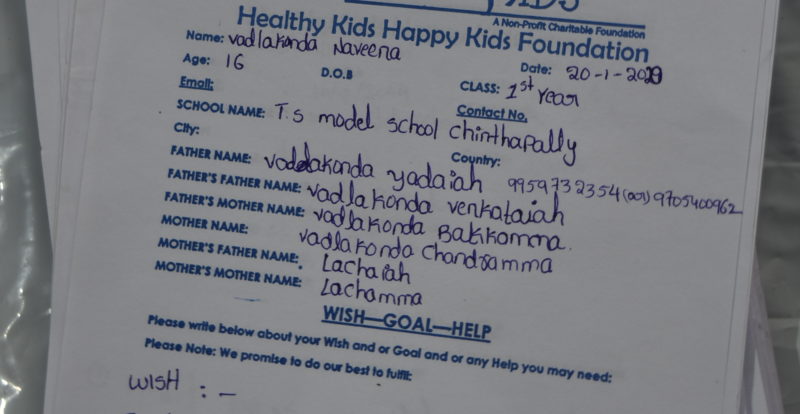 A Non-Profit Charitable Foundation
Healthy Kids Happy Kids Foundation
Name: Vadlakonda Naveena
Date: 20-1-2020
Age: 16
D.O.B
CLASS: 1st Year
Email:
Contact No.
SCHOOL NAME: T.S model school chinthapally
City:
Country:
FATHER NAME: vadlakonda yadaiah 9959732354 (or) 9705400962
FATHER'S FATHER NAME: Vadlakonda venkataiah
FATHER'S MOTHER NAME: Vadlakonda Bakkomma.
MOTHER NAME: Vadlakonda Chandramma
MOTHER'S FATHER NAME: Lachaiah
MOTHER'S MOTHER NAME: Lachamma
WISH—GOAL—HELP
Please write below about your Wish and or Goal and or any Help you may need:
Please Note: We promise to do our best to fulfil:
WISH : –